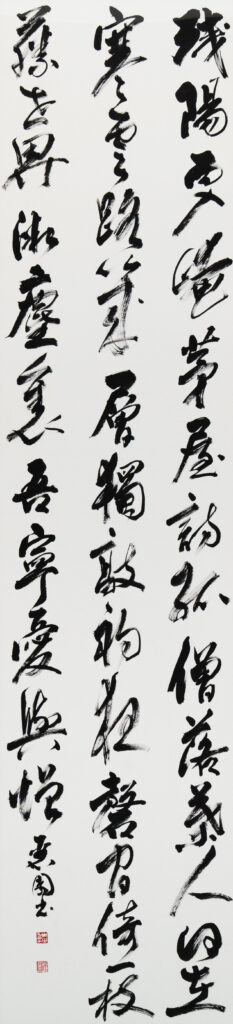 殘陽西入崦茅屋訪孤僧落葉人何在
寒雲路幾層獨敲初夜磬閒倚一枝
藤世界微塵裏吾寧愛與憎 書